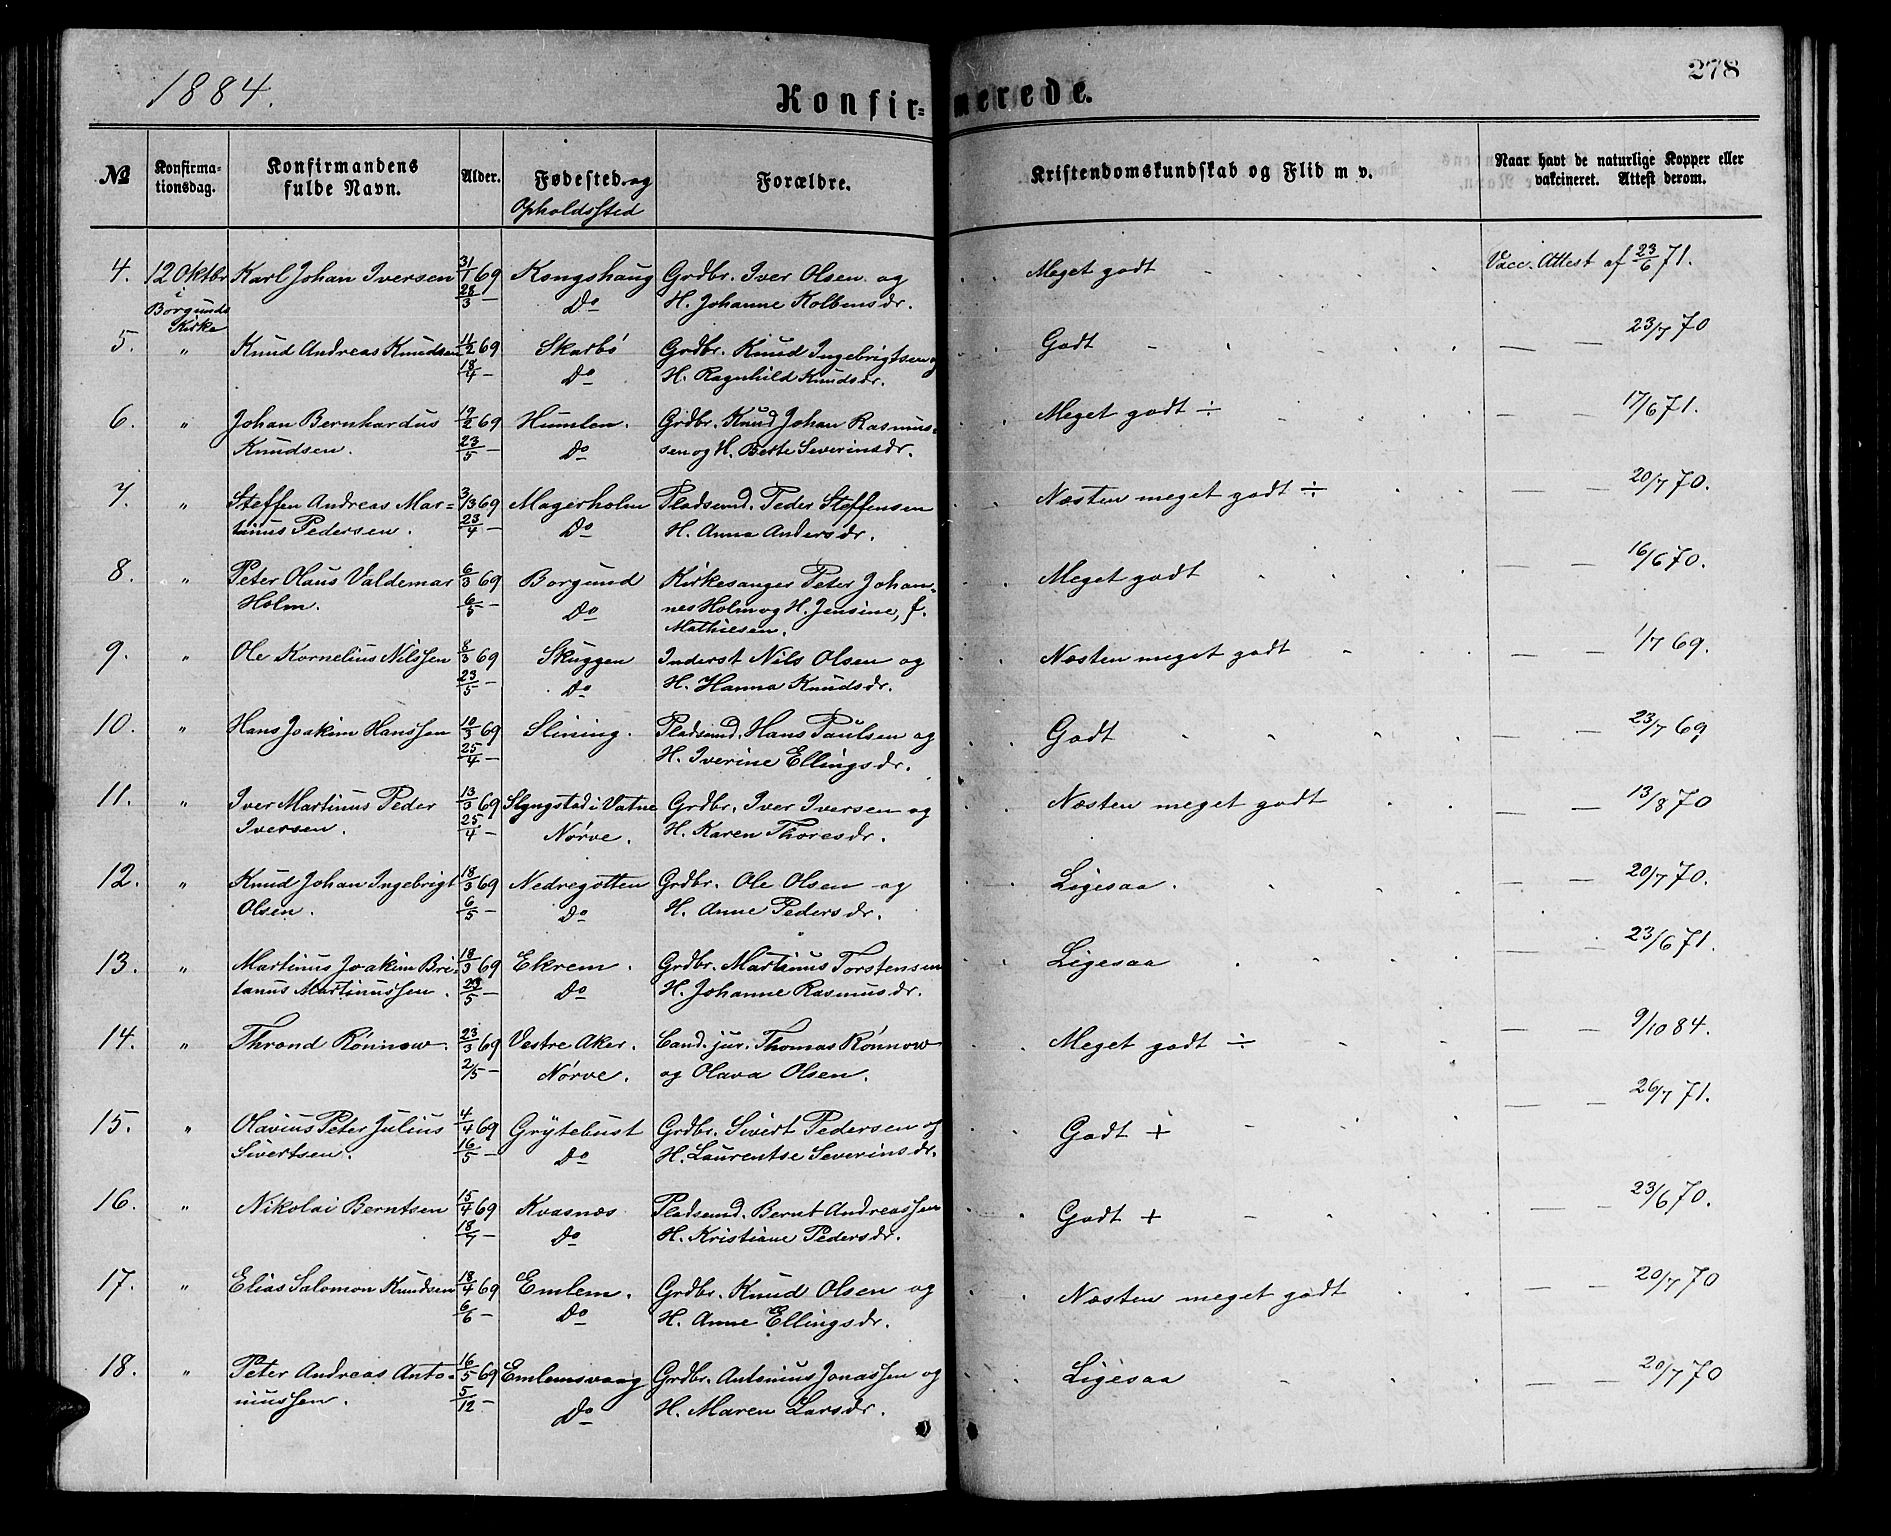 1884.
278
Konfirmerede.
№ Konfirmationsdag. Konfirmandens fulde Navn. Alder. Fødested og Opholdssted Forældre. Kristendomskundskab og Flid m v. Naar havt de naturlige Kopper eller vakcineret. Attest derom.
4. 12 Oktbr Karl Johan Iversen 31/1 69 Kongshaug Grdbr. Iver Olsen og Meget godt Vacc. Attest af 23/6 71.
i Borgunds Kirke 28/3 — Do H. Johanne Kolbensdr.
5. " Knud Andreas Knudsen 11/2 69 Skarbö Grdbr. Knud Ingebrigtsen og Godt — — 23/7 70
18/4 — Do H. Ragnhild Knudsdr.
6. " Johan Bernhardus 19/2 69 Humlen. Grdbr. Knud Johan Rasmus- Meget godt ÷ — — 17/6 71.
Knudsen. 23/5 — Do sen og H. Berte Severinsdr.
7. " Steffen Andreas Mar- 3/3 69 Magerholm Pladsmd. Peder Steffensen Næsten meget godt ÷ — — 20/7 70.
tinus Pedersen. 23/4 — Do H. Anna Andersdr.
8. " Peter Olaus Valdemar 6/3 69 Borgund Kirkesanger Peter Johan- Meget godt — — 16/6 70.
Holm. 6/5 — Do nes Holm og H. Jensine, f.
Mathiesen.
9. " Ole Kornelius Nilssen 8/3 69 Skuggen Inderst Nils Olsen og Næsten meget godt — — 1/7 69.
23/5 — Do H. Hanna Knudsdr.
10. " Hans Joakim Hanssen 10/3 69 Slining. Pladsmd. Hans Paulsen og Godt — — 23/7 69
25/4 — H. Iverine Ellingsdr.
11. " Iver Martinus Peder 13/3 69 Slyngstad i Vatne Grdbr. Iver Iversen og Næsten meget godt — 13/8 70
Iversen. 25/4 — Nörve. H. Karen Thoresdr.
12. " Knud Johan Ingebrigt 18/3 69 Nedregotten Grdbr. Ole Olsen og Ligesaa. — — 20/7 70.
Olsen. 6/5 — Do H. Anne Pedersdr.
13. " Martinus Joakim Bri- 18/3 69 Ekrem. Grdbr. Martinus Torstensen Ligesaa — — 23/6 71.
tanus Martinussen. 23/5 — Do H. Johanne Rasmusdr.
14. " Thrond Rönnow. 23/3 69 Vestre Aker. Cand. jur. Thomas Rönnow Meget godt ÷ — — 9/10 84.
2/5 — Nörve. og Olava Olsen.
15. " Olavius Peter Julius 4/4 69 Grytebust Grdbr. Sivert Pedersen og Godt + — — 26/7 71.
Sivertsen. 16/5 — Do H. Laurentse Severinsdr.
16. " Nikolai Berntsen 15/4 69 Kvasnæs Pladsmd. Bernt Andreassen Godt + — — 23/6 70.
18/7 — Do H. Kristiane Pedersdr.
17. " Elias Salomon Knudsen 18/4 69 Emlem. Grdbr. Knud Olsen og Næsten meget godt — — 20/7 70
6/6 — Do H. Anne Ellingsdr.
18. " Peter Andreas Anto- 16/5 69 Emlemsvaag Grdbr. Antonius Jonassen og Ligesaa — — 20/7 70
niussen. 5/12 — Do H. Maren Larsdr.